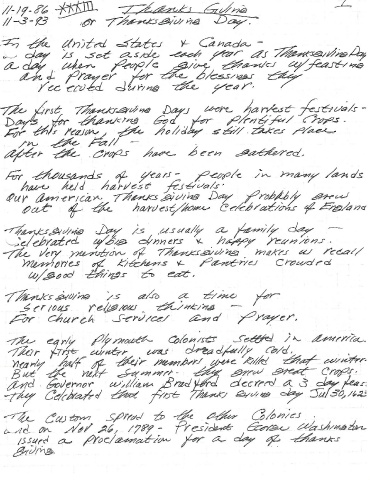 11-19-86 XXXIII Thanks Giving 1
11-3-93 or Thanksgiving Day.
In the United States & Canada -
a day is set aside each year as Thanksgiving Day
a day when people give thanks w/feasting
and Prayer for the blessings they
received during the year.
The first Thanksgiving Days were harvest festivals -
Days for thanking God for plentiful crops.
For this reason the holiday still takes place
in the Fall -
after the crops have been gathered.
For thousands of years - people in many lands
have held harvest festivals.
Our American Thanksgiving Day probably grew
out of the harvest/home celebrations of England
Thanksgiving Day is usually a family day -
celebrated w/big dinners & happy reunions.
The very mention of Thanksgiving makes us recall
memories of kitchens & pantries crowded
w/good things to eat.
Thanksgiving is also a time for
serious religious thinking -
for church services and prayer.
The early Plymouth Colonists settled in America
Their first winter was dreadfully cold.
nearly half of their members were killed that winter.
But the next summer - they grew great crops.
and Governor William Bradford decreed a 3 day feast
They celebrated that first Thanksgiving day Jul 30, 1623
The custom spread to the other Colonies
and on Nov 26, 1789 - President George Washington
issued a Proclamation for a day of thanks
giving